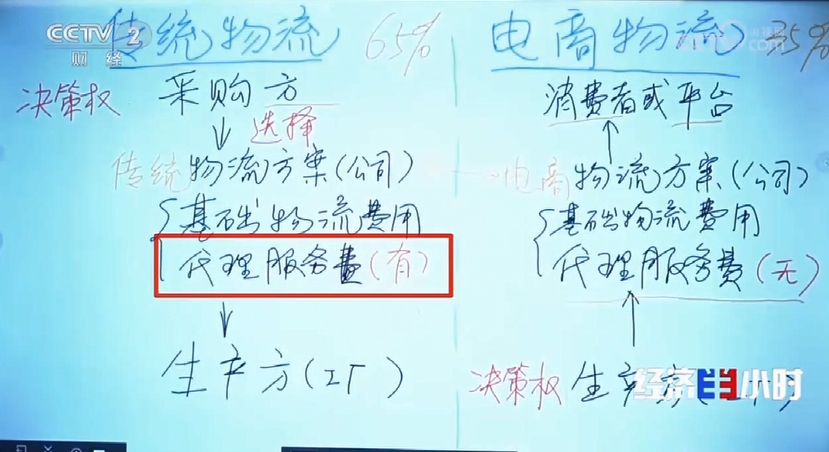 CCTV 2
财经
传统物流 65%
决策权 采购方
选择
传统物流方案(公司)
基础物流费用
代理服务费(有)
生产方(工厂)
电商物流 35%
消费者或平台
电商物流方案(公司)
基础物流费用
代理服务费(无)
决策权 生产方
经济半小时